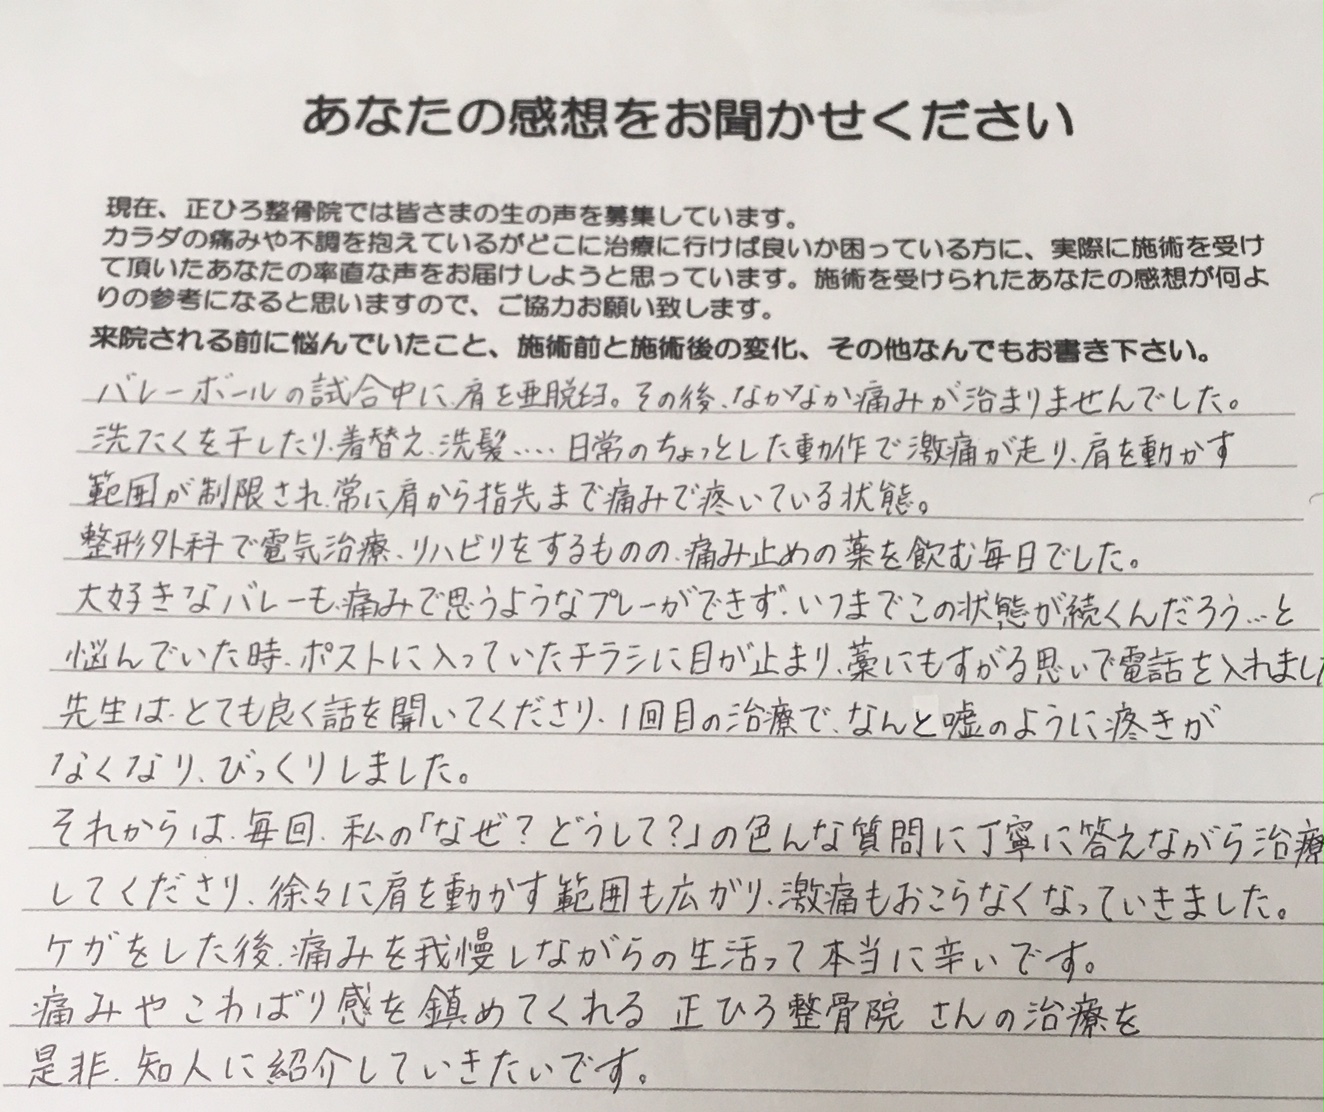 あなたの感想をお聞かせください
現在、正ひろ整骨院では皆さまの生の声を募集しています。
カラダの痛みや不調を抱えているがどこに治療に行けば良いか困っている方に、実際に施術を受け
て頂いたあなたの率直な声をお届けしようと思っています。施術を受けられたあなたの感想が何よ
りの参考になると思いますので、ご協力お願い致します。
来院される前に悩んでいたこと、施術前と施術後の変化、その他なんでもお書き下さい。
バレーボールの試合中に、肩を亜脱臼。その後、なかなか痛みが治まりませんでした。
洗たくを干したり、着替え、洗髪.... 日常のちょっとした動作で激痛が走り、肩を動かす
範囲が制限され、常に肩から指先まで痛みで疼いている状態。
整形外科で電気治療、リハビリをするものの、痛み止めの薬を飲む毎日でした。
大好きなバレーも、痛みで思うようなプレーができず、いつまでこの状態が続くんだろう...と
悩んでいた時、ポストに入っていたチラシに目が止まり、藁にもすがる思いで電話を入れました
先生は、とても良く話を聞いてくださり、1回目の治療で、なんと嘘のように疼きが
なくなり、びっくりしました。
それからは、毎回、私の「なぜ?どうして?」の色んな質問に丁寧に答えながら治療
してくださり、徐々に肩を動かす範囲も広がり、激痛もおこらなくなっていきました。
ケガをした後、痛みを我慢しながらの生活って本当に辛いです。
痛みやこわばり感を鎮めてくれる 正ひろ整骨院 さんの治療を
是非、知人に紹介していきたいです。